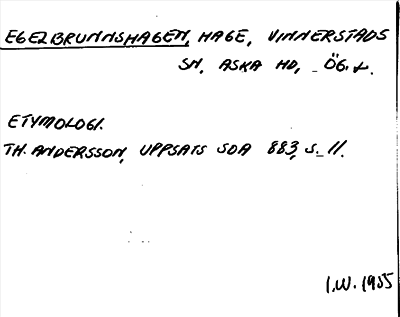 EGELBRUNNSHAGEN, HAGE, VINNERSTADS
SN, ASKA HD, ÖG. L.
ETYMOLOGI.
TH. ANDERSSON, UPPSATS SOA 883, S. 11.
I.W. 1955